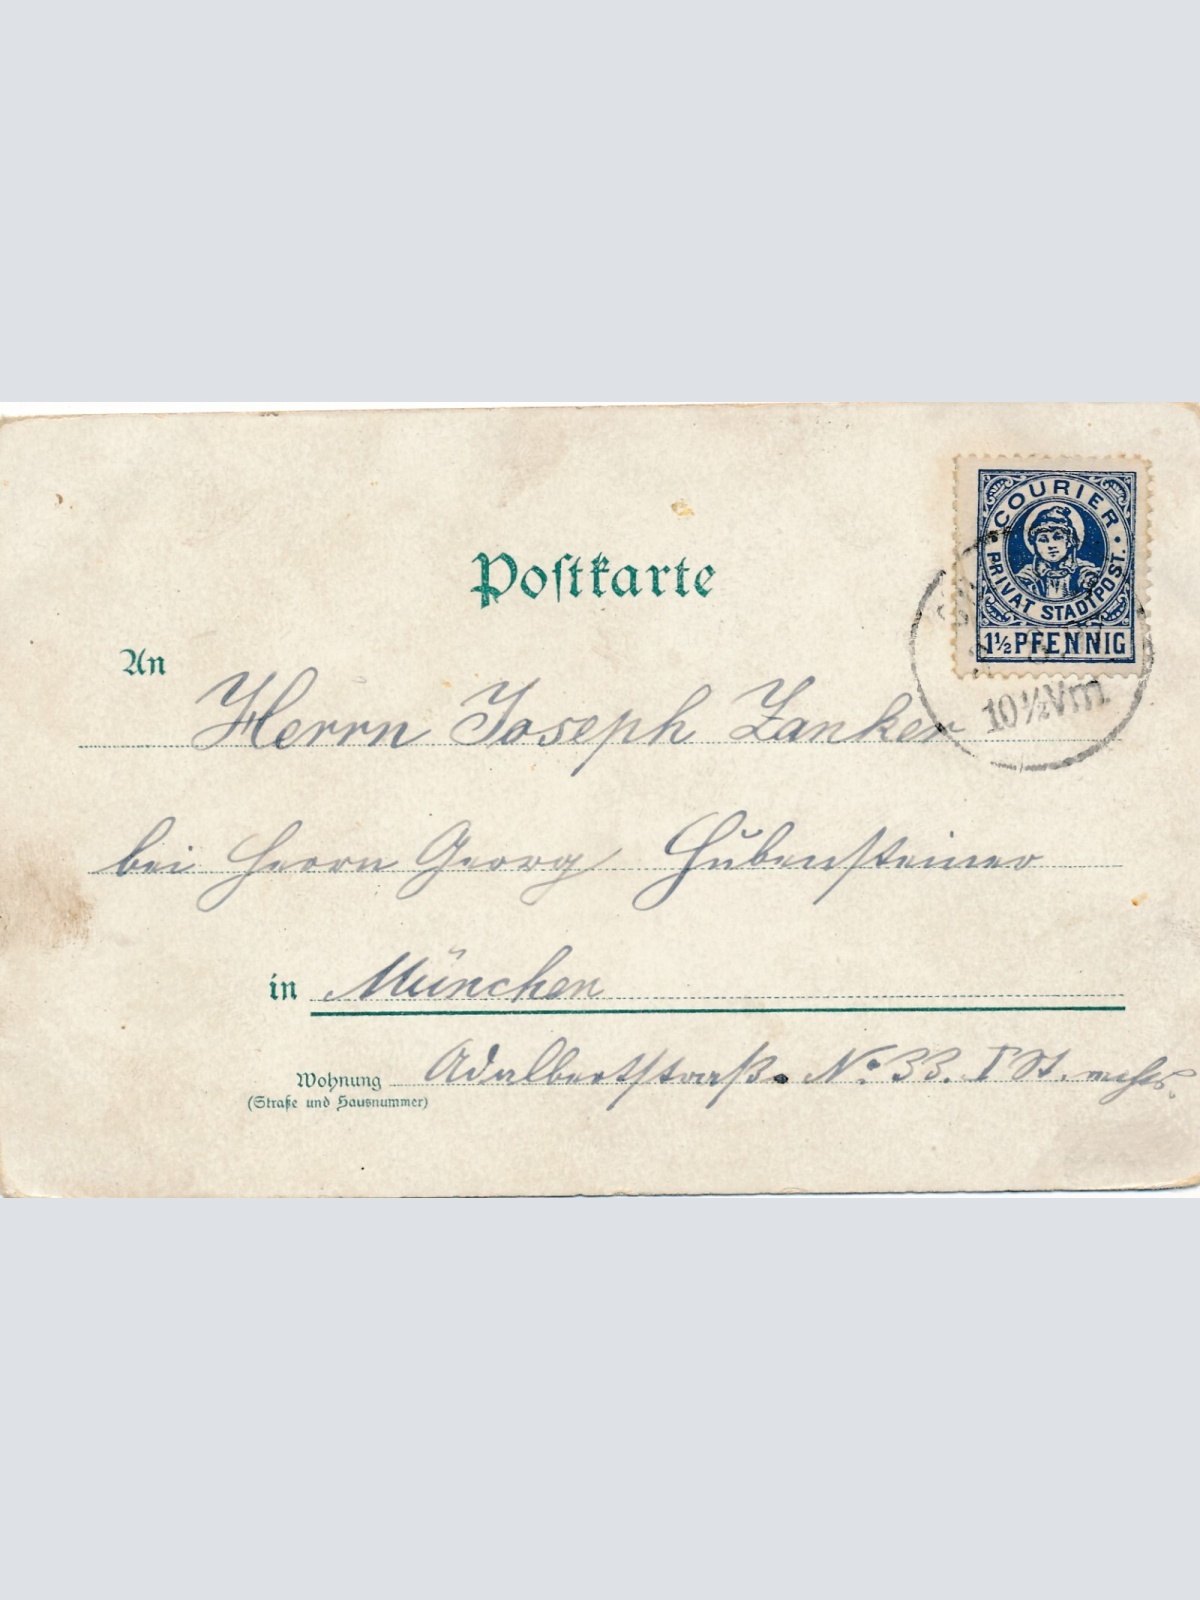 Postkarte
COURIER
PRIVAT STADTPOST.
1½ PFENNIG
10½Vm.
An
Herrn Joseph Zanker
bei Herrn Georg Hübensteiner
in München
Wohnung Adalbertstraß. No. 33. I St. rechts.
(Straße und Hausnummer)